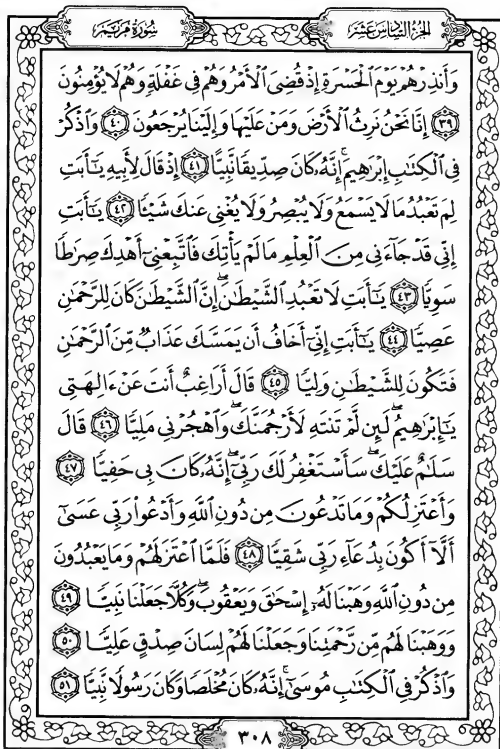 سُورَةُ مَرْيَم
الجُزْءُ السَّادِسَ عَشَرَ
وَأَنذِرْهُمْ يَوْمَ ٱلْحَسْرَةِ إِذْ قُضِىَ ٱلْأَمْرُ وَهُمْ فِى غَفْلَةٍ وَهُمْ لَا يُؤْمِنُونَ
٣٩ إِنَّا نَحْنُ نَرِثُ ٱلْأَرْضَ وَمَنْ عَلَيْهَا وَإِلَيْنَا يُرْجَعُونَ ٤٠ وَٱذْكُرْ
فِى ٱلْكِتَٰبِ إِبْرَٰهِيمَ ۚ إِنَّهُۥ كَانَ صِدِّيقًا نَّبِيًّا ٤١ إِذْ قَالَ لِأَبِيهِ يَٰٓأَبَتِ
لِمَ تَعْبُدُ مَا لَا يَسْمَعُ وَلَا يُبْصِرُ وَلَا يُغْنِى عَنكَ شَيْـًٔا ٤٢ يَٰٓأَبَتِ
إِنِّى قَدْ جَآءَنِى مِنَ ٱلْعِلْمِ مَا لَمْ يَأْتِكَ فَٱتَّبِعْنِىٓ أَهْدِكَ صِرَٰطًا
سَوِيًّا ٤٣ يَٰٓأَبَتِ لَا تَعْبُدِ ٱلشَّيْطَٰنَ ۖ إِنَّ ٱلشَّيْطَٰنَ كَانَ لِلرَّحْمَٰنِ
عَصِيًّا ٤٤ يَٰٓأَبَتِ إِنِّىٓ أَخَافُ أَن يَمَسَّكَ عَذَابٌ مِّنَ ٱلرَّحْمَٰنِ
فَتَكُونَ لِلشَّيْطَٰنِ وَلِيًّا ٤٥ قَالَ أَرَاغِبٌ أَنتَ عَنْ ءَالِهَتِى
يَٰٓإِبْرَٰهِيمُ ۖ لَئِن لَّمْ تَنتَهِ لَأَرْجُمَنَّكَ ۖ وَٱهْجُرْنِى مَلِيًّا ٤٦ قَالَ
سَلَٰمٌ عَلَيْكَ ۖ سَأَسْتَغْفِرُ لَكَ رَبِّىٓ ۖ إِنَّهُۥ كَانَ بِى حَفِيًّا ٤٧
وَأَعْتَزِلُكُمْ وَمَا تَدْعُونَ مِن دُونِ ٱللَّهِ وَأَدْعُوا۟ رَبِّى عَسَىٰٓ
أَلَّآ أَكُونَ بِدُعَآءِ رَبِّى شَقِيًّا ٤٨ فَلَمَّا ٱعْتَزَلَهُمْ وَمَا يَعْبُدُونَ
مِن دُونِ ٱللَّهِ وَهَبْنَا لَهُۥٓ إِسْحَٰقَ وَيَعْقُوبَ ۖ وَكُلًّا جَعَلْنَا نَبِيًّا ٤٩
وَوَهَبْنَا لَهُم مِّن رَّحْمَتِنَا وَجَعَلْنَا لَهُمْ لِسَانَ صِدْقٍ عَلِيًّا ٥٠
وَٱذْكُرْ فِى ٱلْكِتَٰبِ مُوسَىٰٓ ۚ إِنَّهُۥ كَانَ مُخْلَصًا وَكَانَ رَسُولًا نَّبِيًّا ٥١
٣٠٨